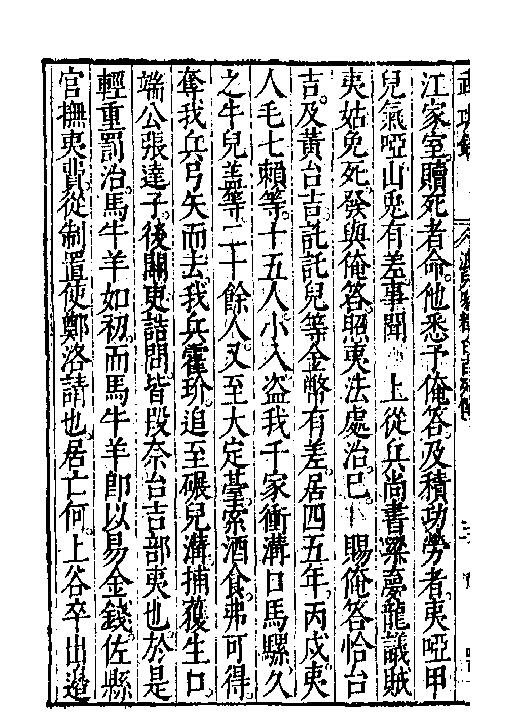 江家室贖死者命他悉予俺答及積功勞者夷啞甲
兒氣啞山兎有差事聞 上從兵尚書梁夢龍議賊
夷姑免死發與俺答照夷法處治已 賜俺答恰台
吉及黃台吉託託兒等金幣有差居四五年丙戌夷
人毛七賴等十五人小入盜我千家衝溝口馬騾久
之牛兒盖等二十餘人又至大定䑓索酒食弗可得
奪我兵弓矢而去我兵霍玠追至碾兒溝捕獲生口
端公張達子後關吏詰問皆段奈台吉部夷也於是
輕重罰治馬牛羊如初而馬牛羊即以易金錢佐縣
官撫夷費從制置使鄭洛請也居亡何上谷卒出邉